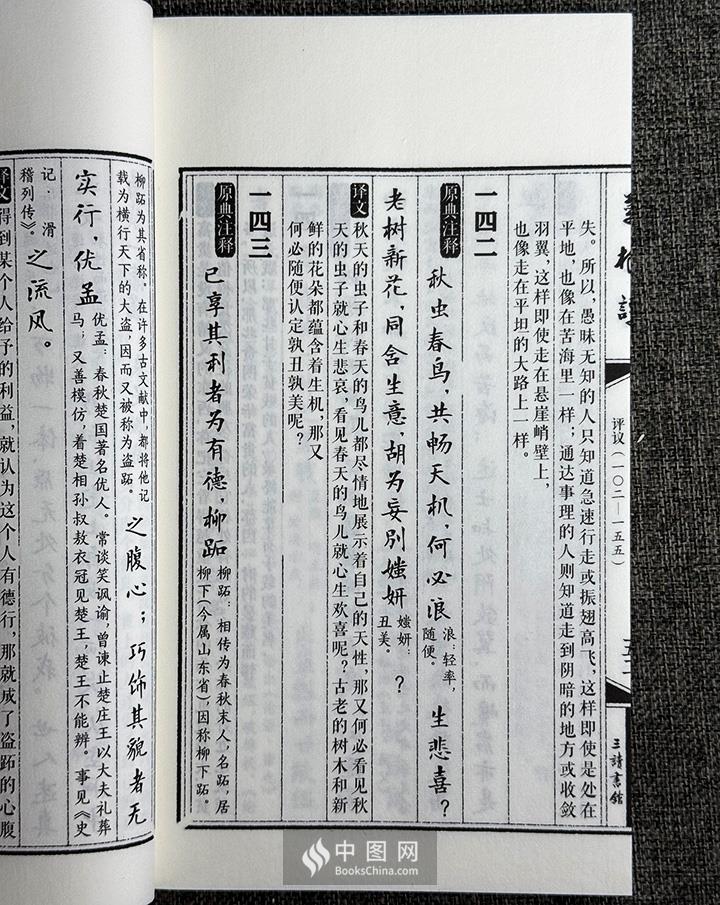 失。所以，愚昧无知的人只知道急速行走或振翅高飞，这样即使是处在
平地，也像在苦海里一样；通达事理的人则知道走到阴暗的地方或收敛
羽翼，这样即使走在悬崖峭壁上，
也像走在平坦的大路上一样。
一四二
原典注释 秋虫春鸟，共畅天机，何必浪 浪：轻率，随便。 生悲喜？
老树新花，同含生意，胡为妄别媸妍 媸妍：丑美。 ？
译文 秋天的虫子和春天的鸟儿都尽情地展示着自己的天性，那又何必看见秋
天的虫子就心生悲哀，看见春天的鸟儿就心生欢喜呢？古老的树木和新
鲜的花朵都蕴含着生机，那又
何必随便认定孰丑孰美呢？
一四三
原典注释 已享其利者为有德，柳跖 柳跖：相传为春秋末人，名跖，居柳下（今属山东省），因称柳下跖。
柳跖为其省称。在许多古文献中，都将他记载为横行天下的大盗，因而又被称为盗跖。 之腹心；巧饰其貌者无
实行，优孟 优孟：春秋楚国著名优人。常谈笑讽谕，曾谏止楚庄王以大夫礼葬马；又善模仿，着楚相孙叔敖衣冠见楚王，楚王不能辨。事见《史
记·滑稽列传》。 之流风。
译文 得到某个人给予的利益，就认为这个人有德行，那就成了盗跖的心腹
评议（一〇二—一五五）
三请书馆
中图网
BooksChina.com